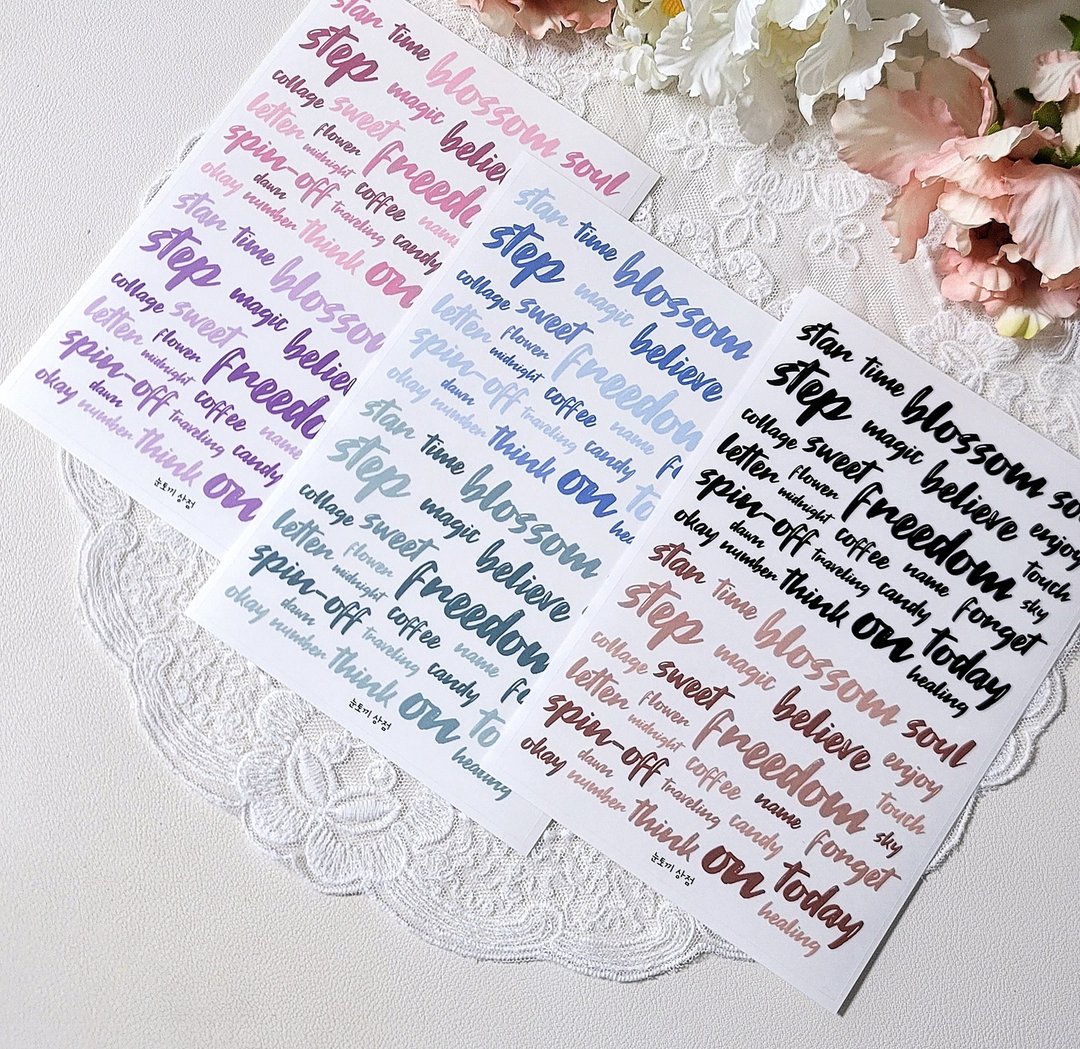 star time blossom soul
step magic belie
collage sweet freedo
letter flower
midnight
spin-off coffee name
dawn traveling candy
okay number think on
star time blossom
step magic believe
collage sweet freedo
letter flower
midnight
spin-off coffee name
dawn traveling candy
okay number think on
눈토끼 상점
star time blossom
step magic believe
collage sweet freedom
letter flower
midnight
spin-off coffee name fo
dawn traveling candy
okay number think on to
healing
star time blossom
step magic believe
collage sweet freedom
letter flower
midnight
spin-off coffee name fo
dawn traveling candy
okay number think on to
healing
눈토끼 상점
star time blossom sou
step magic believe enjoy
collage sweet freedom touch
letter flower sky
midnight
spin-off coffee name forget
dawn traveling candy
okay number think on today
healing
star time blossom soul
step magic believe enjoy
collage sweet freedom touch
letter flower sky
midnight
spin-off coffee name forget
dawn traveling candy
okay number think on today
healing
눈토끼 상점